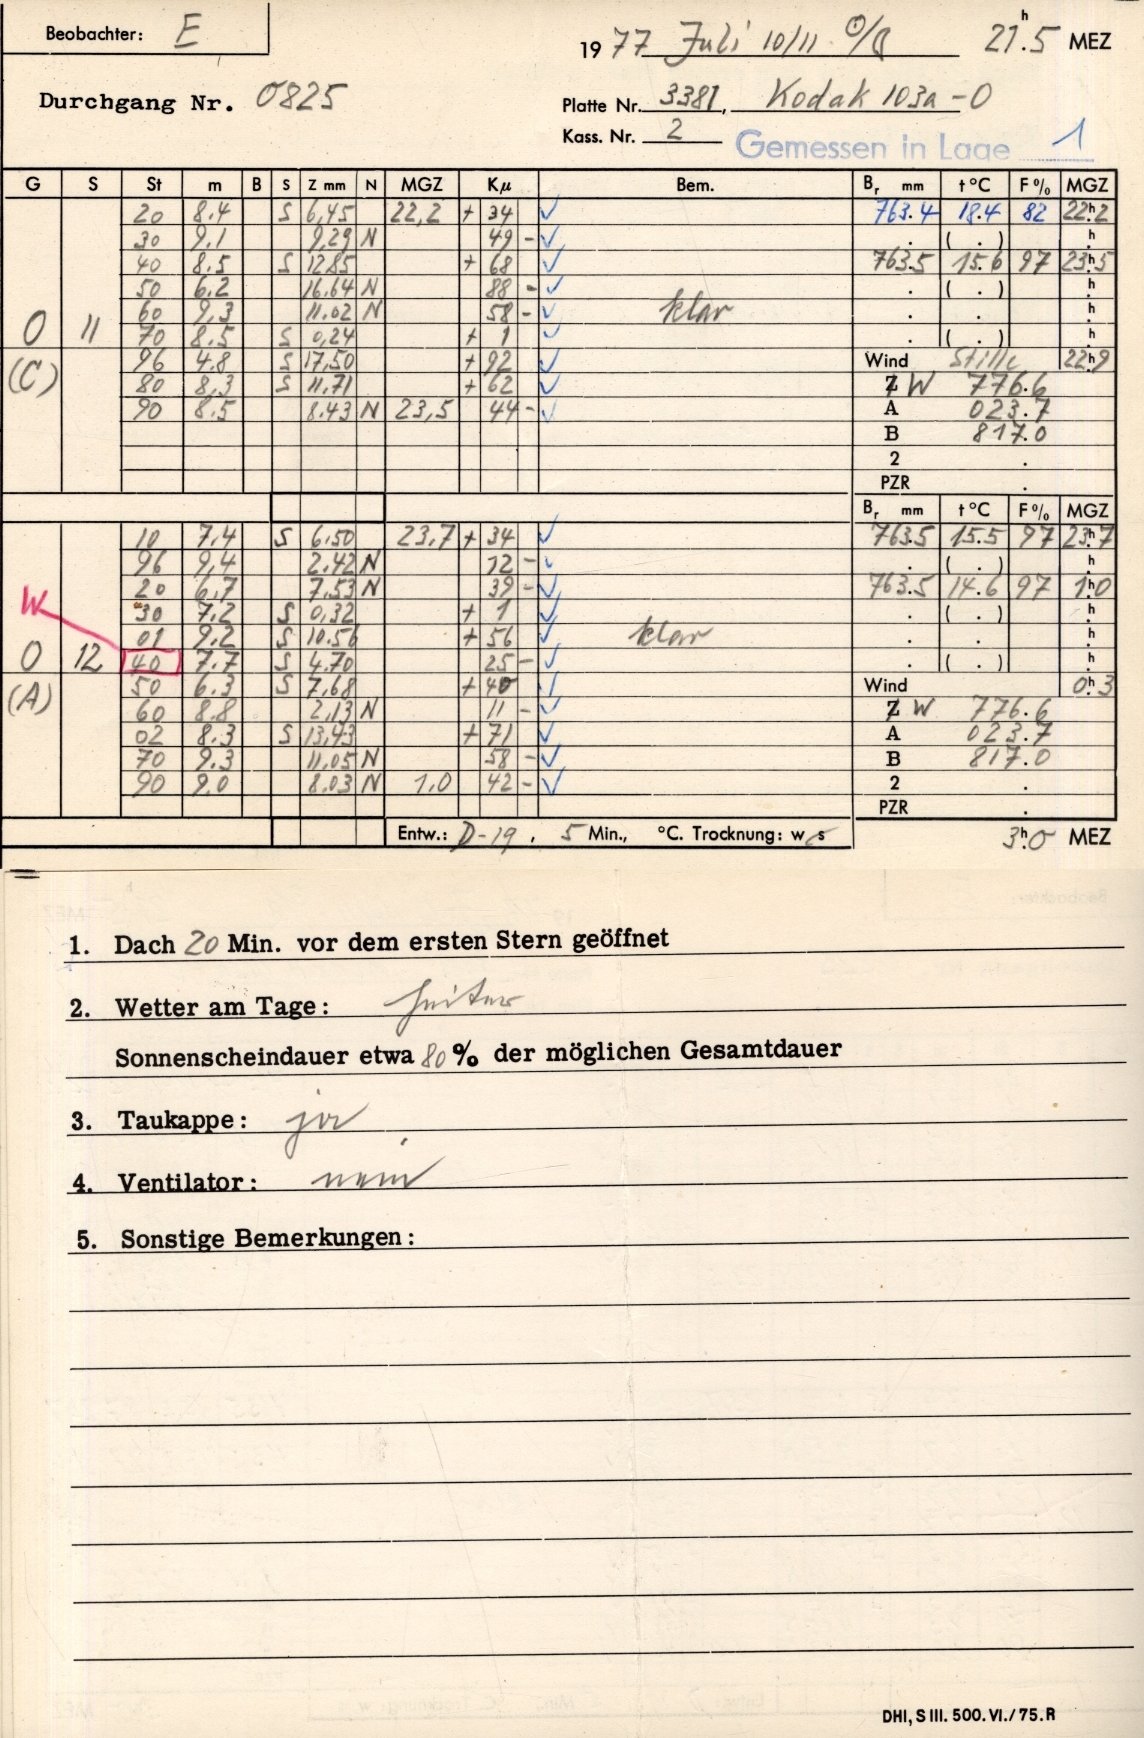 Beobachter: E
1977 Juli 10/11 ☉/☾ 21h.5 MEZ
Durchgang Nr. 0825
Platte Nr. 3381, Kodak 103a-O
Kass. Nr. 2 Gemessen in Lage 1
G S St m B S Z mm N MGZ Kμ Bem. Br mm t °C F % MGZ
20 8.4 S 6,45 22,2 + 34 ✓ 763.4 18.4 82 22h2
30 9.1 9,29 N 49 - ✓ . ( . ) h
40 8.5 S 12.85 + 68 ✓ 763.5 15.6 97 23h5
50 6.2 16.64 N 88 - ✓ . ( . ) h
60 9,3 11.02 N 58 - ✓ klar . . h
O 11 70 8.5 S 0,24 + 1 ✓ ( . ) h
96 4.8 S 17,50 + 92 ✓ Wind Stille 22h9
(C) 80 8,3 S 11.71 + 62 ✓ Z W 776.6
90 8.5 8.43 N 23,5 44 - ✓ A 023.7
B 817.0
2 .
PZR .
Br mm t °C F % MGZ
10 7.4 S 6.50 23,7 + 34 ✓ 763.5 15.5 97 23h7
96 9,4 2.42 N 12 - ✓ . ( . ) h
20 6,7 7,53 N 39 - ✓ 763.5 14.6 97 1h0
W 30 7.2 S 0,32 + 1 ✓ . ( . ) h
01 9.2 S 10.56 + 56 ✓ klar . . h
O 12 40 7.7 S 4.70 25 - ✓ . ( . ) h
50 6.3 S 7,68 + 40 ✓ Wind 0h3
(A) 60 8.8 2,13 N 11 - ✓ Z W 776.6
02 8.3 S 13,43 + 71 ✓ A 023.7
70 9.3 11,05 N 58 - ✓ B 817.0
90 9.0 8.03 N 1,0 42 - ✓ 2 .
PZR .
Entw.: D-19, 5 Min., °C. Trocknung: w s 3h.0 MEZ
1. Dach 20 Min. vor dem ersten Stern geöffnet
2. Wetter am Tage: heiter
Sonnenscheindauer etwa 80 % der möglichen Gesamtdauer
3. Taukappe: ja
4. Ventilator: nein
5. Sonstige Bemerkungen:
DHI, S III. 500. VI./75. R